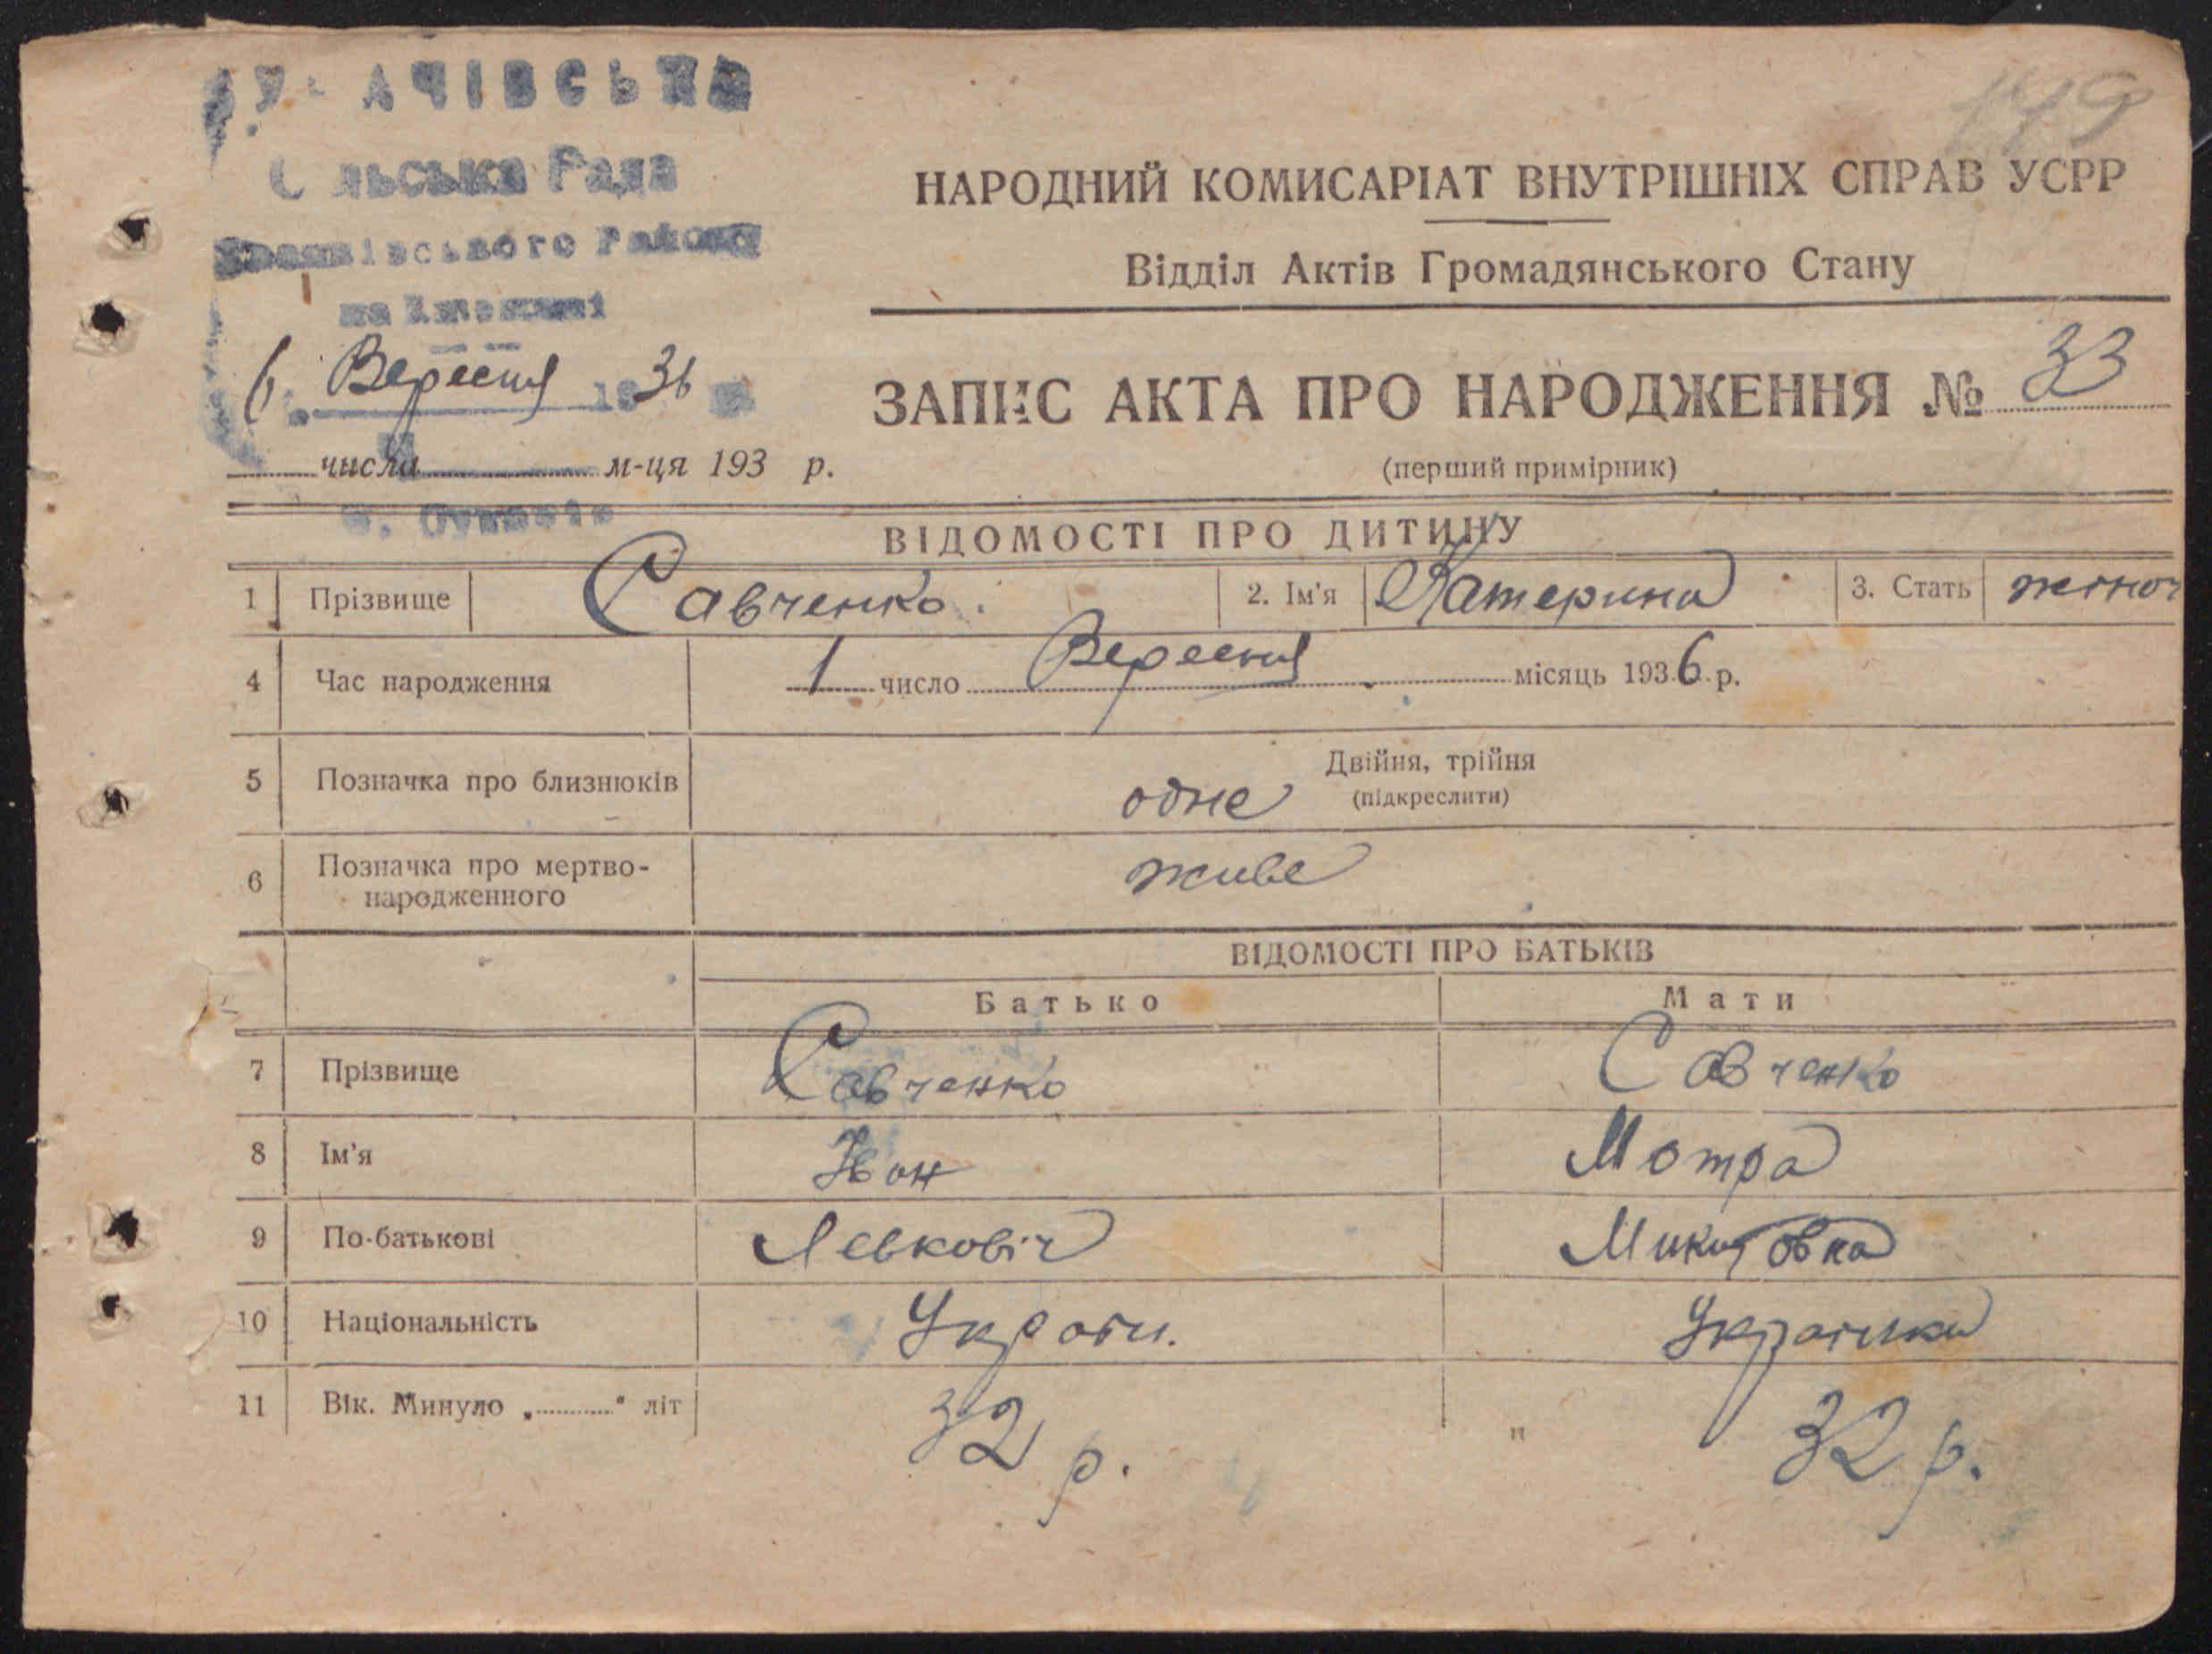 Сільська Рада
6 Вересня 1936
числа м-ця 193 р.
149
НАРОДНИЙ КОМИСАРІАТ ВНУТРІШНІХ СПРАВ УСРР
Відділ Актів Громадянського Стану
ЗАПИС АКТА ПРО НАРОДЖЕННЯ № 33
(перший примірник)
ВІДОМОСТІ ПРО ДИТИНУ
1 Прізвище Савченко. 2. Ім'я Катерина 3. Стать жіноч
4 Час народження 1 число Вересня місяць 1936 р.
5 Позначка про близнюків одне Двійня, трійня
(підкреслити)
6 Позначка про мертво-
народженного живе
ВІДОМОСТІ ПРО БАТЬКІВ
Батько Мати
7 Прізвище Савченко Савченко
8 Ім'я Iвон Мотра
9 По-батькові Левковіч Микитовна
10 Національність Україн. Українка
11 Вік. Минуло „ " літ 32 р. " 32 р.